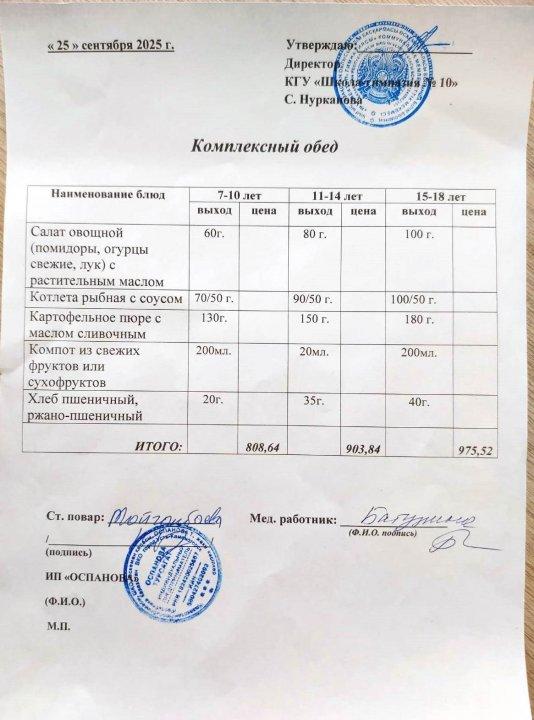 « 25 » сентября 2025 г.
Утверждаю:
Директор
КГУ «Школа-гимназия № 10»
С. Нурканова
Комплексный обед
Наименование блюд 7-10 лет 11-14 лет 15-18 лет
выход цена выход цена выход цена
Салат овощной 60г. 80 г. 100 г.
(помидоры, огурцы
свежие, лук) с
растительным маслом
Котлета рыбная с соусом 70/50 г. 90/50 г. 100/50 г.
Картофельное пюре с 130г. 150 г. 180 г.
маслом сливочным
Компот из свежих 200мл. 20мл. 200мл.
фруктов или
сухофруктов
Хлеб пшеничный, 20г. 35г. 40г.
ржано-пшеничный
ИТОГО: 808,64 903,84 975,52
Ст. повар: Мед. работник:
(Ф.И.О. подпись)
(подпись)
ИП «ОСПАНОВА»
(Ф.И.О.)
М.П.